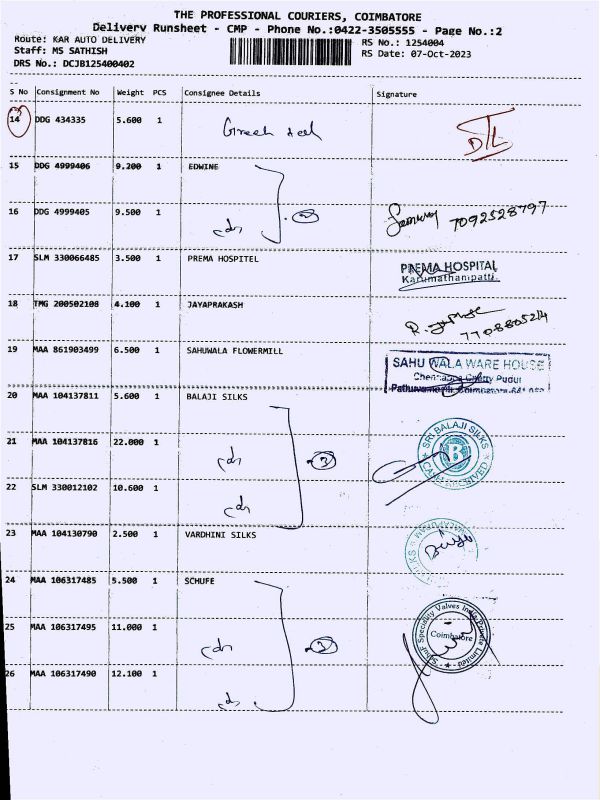 THE PROFESSIONAL COURIERS, COIMBATORE
Delivery Runsheet - CMP - Phone No.:0422-3505555 - Page No.:2
Route: KAR AUTO DELIVERY
RS No.: 1254004
Staff: MS SATHISH
RS Date: 07-Oct-2023
DRS No.: DCJB125400402
S No Consignment No Weight PCS Consignee Details Signature
14 DDG 434335 5.600 1
15 DDG 4999406 9.200 1 EDWINE
16 DDG 4999405 9.500 1 7092528797
17 SLM 330066485 3.500 1 PREMA HOSPITEL
PREMA HOSPITAL
Karumathampatti.
18 TMG 200502108 4.100 1 JAYAPRAKASH
19 MAA 861903499 6.500 1 SAHUWALA FLOWERMILL
SAHU WALA WARE HOUSE
20 MAA 104137811 5.600 1 BALAJI SILKS
21 MAA 104137816 22.000 1 3
SRI BALAJI SILKS
B
22 SLM 330012102 10.600 1
23 MAA 104130790 2.500 1 VARDHINI SILKS
24 MAA 106317485 5.500 1 SCHUFE
25 MAA 106317495 11.000 1 3
Schuf Speciality Valves India Private Limited
Coimbatore
26 MAA 106317490 12.100 1